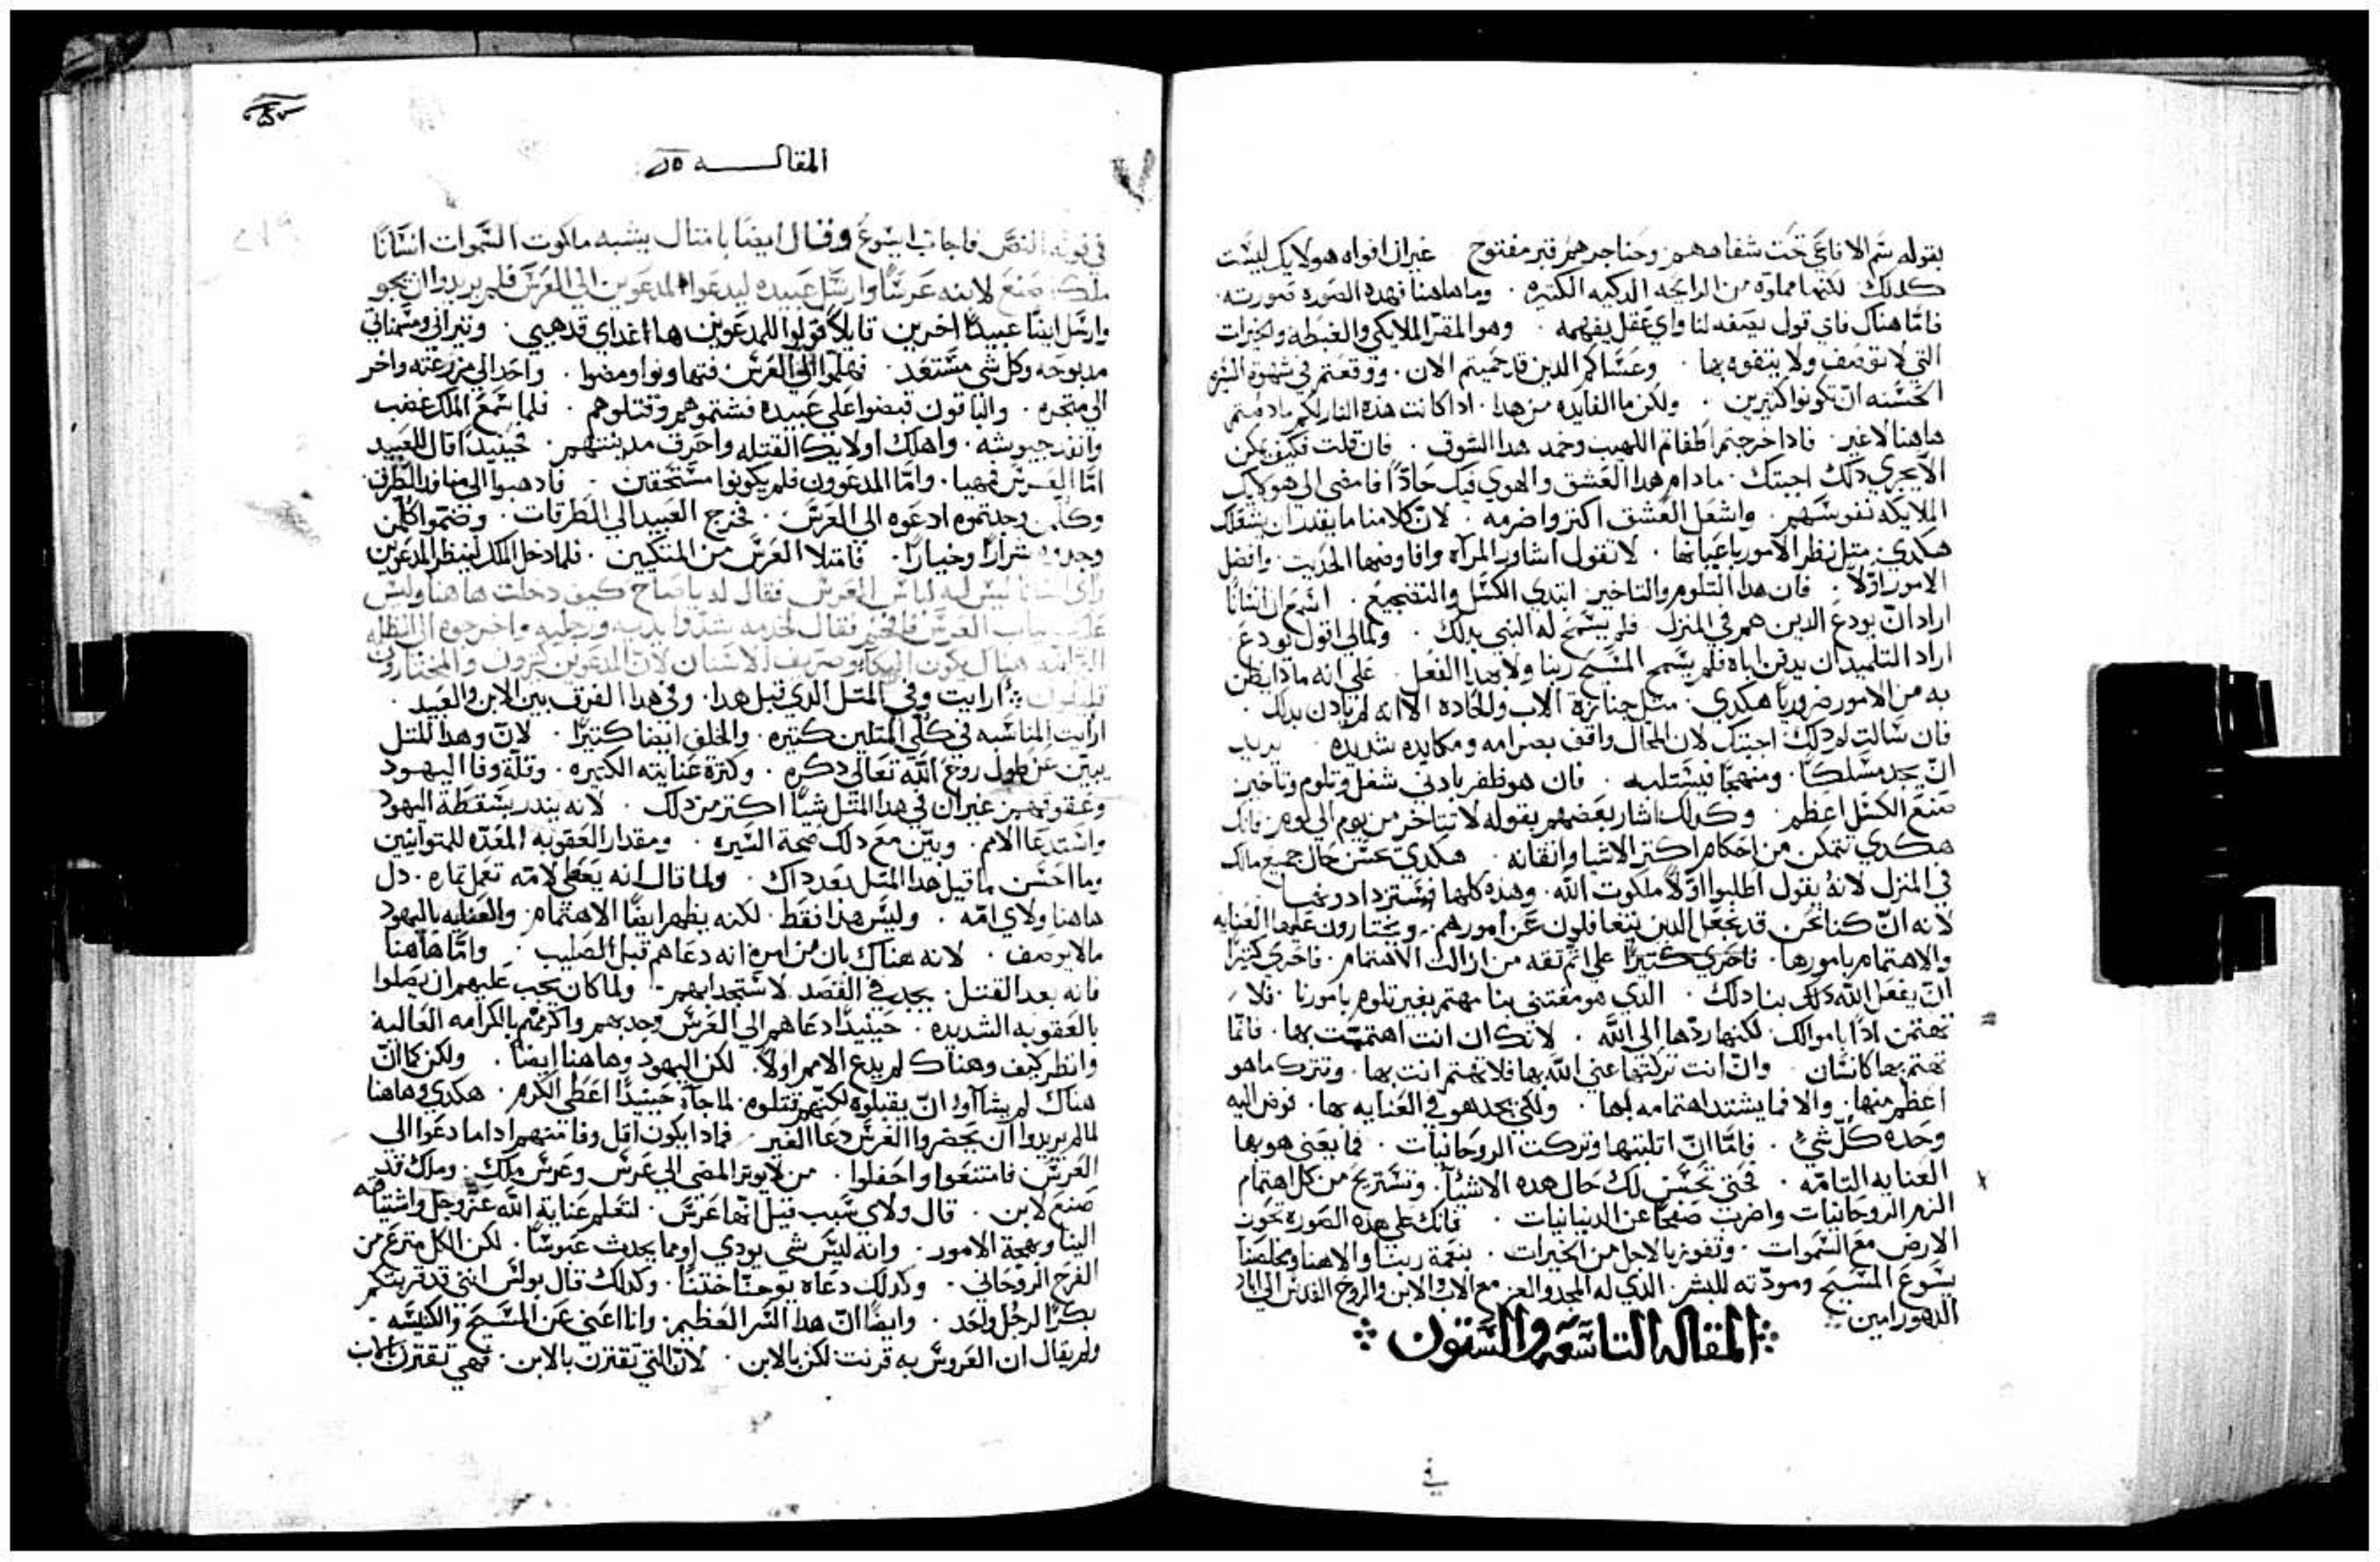 بقوله سم الافاعي تحت شفاههم وحناجرهم قبر مفتوح غير ان افواه هولايك ليست
كدلك لكنها مملوه من الرايحه الدكيه الكتيره وما هاهنا فهده الصوره صورته
فامّا هناك فاي قول يصفه لنا واي عقل يفهمه وهو المقر الملايكي والغبطه والخيرات
التي لا توصف ولا يتفوه بها وعساكم الدين قد حميتم الان ووقعتم في شهوة
الحسنه ان تكونوا كتيرين ولكن ما الفايده من هدا ادا كانت هده النار لكم ما دمتم
هاهنا لا غير فادا خرجتم اطفاتم اللهيب وخمد هدا الشوق فان قلت فكيف يمكن
الا يجري دلك اجبتك مادام هدا العشق والهوي فيك حادّا فامضي الي هولايك
الملايكه نفوسهم واشعل العشق اكتر واضرمه لان كلامنا ما يقدر ان يشعلك
هكدي متل نظر الامور باعيانها لا تقول اشاور المراه وافاوضها الحديت وافصل
الامور اوّلا فان هدا التلوم والتاخير ابتدي الكسل والتضجيع اسمع ان انسانا
اراد ان يودع الدين هم في المنزل فلم يسمح له النبي بدلك ولمالي اقول يودع
اراد التلميد ان يدفن اباه فلم يسمح المسيح ربنا ولا بهدا الفعل علي انه مادا يظن
به من الامور ضروريا هكدي متل جنازة الاب والحاده الا انه لم يادن بدلك
فان سالت لم دلك اجبتك لان المحال واقف بصرامه ومكايده شديده يريد
ان يجد مسلكا ومنهجا فيستلبه فان هو ظفر بادني شغل وتلوم وتاخير
صنع الكسل اعظم وكدلك اشار بعضهم بقوله لا تتاخر من يوم الي يوم فانك
هكدي تتمكن من احكام اكتر الاشيا واتقانه هكدي تحسن حال جميع مالك
في المنزل لانه يقول اطلبوا اوّلا ملكوت الله وهده كلها فستزدادونها
لانه ان كنا نحن قد نجعل الدين يتغافلون عن امورهم ويختارون عليها العنايه
والاهتمام بامورها فاحري كتيرا علي اتم تقه من ازالك الاهتمام فاحري كتيرا
ان يفعل الله دلك بنا دلك الدي هو معتني بنا مهتم بغير تلوم بامورنا فلا
تهتمن ادا باموالك لكنها ردّها الي الله لانك ان انت اهتممت بها فانما
تهتم بها كانسان وان انت تركتها عني الله بها فلا تهتم انت بها وتترك ما هو
اعظم منها والا فما يشتد اهتمامه بها ولكي يجد هو في العنايه بها فوض اليه
وحده كل شي فامّا ان اتليتها وتركت الروحانيات فما يعني هو بها
العنايه التامّه فحتي تحسن لك حال هده الاشيا وتستريح من كل اهتمام
الزم الروحانيات واضرب صفحا عن الدنيانيات فانك علي هده الصوره تحوز
الارض مع السموات وتفوز بالاجل من الخيرات بنعمة ربنا والاهنا ومخلصنا
يسوع المسيح ومودّته للبشر الدي له المجد والعز مع الاب والابن والروح القدس الي اباد
الدهور امين
المقاله التاسعه والستون
في
المقاله
في قوله النص فاجاب ايسوع وقال ايضا بامتال يشبه ملكوت السموات انسانا
ملكا صنع لابنه عرسا وارسل عبيده ليدعوا المدعوين الي العرس فلم يريدوا ان يجو
وارسل ايضا عبيدا اخرين قايلا قولوا للمدعوين ها اغداي قد هيي وتيراني ومسمناتي
مدبوحه وكل شي مستعد فهلموا الي العرس فتهاونوا ومضوا واحد الي مزرعته واخر
الي متجره والباقون قبضوا علي عبيده فشتموهم وقتلوهم فلما سمع الملك غضب
وانفد جيوشه واهلك اولايك القتله واحرق مدينتهم فحينيدا قال للعبيد
امّا العرس فمهيا وامّا المدعوون فلم يكونوا مستحقين فادهبوا الي منافد الطرق
وكلمن وجدتموه ادعوه الي العرس فخرج العبيد الي الطرقات وضموا كلمن
وجدوه شرارا وخيارا فامتلا العرس من المتكيين فلما دخل الملك لينظر المدعوين
راي انسانا ليس ليه لباس العرس فقال له يا صاح كيف دخلت هاهنا وليس
عليك تياب العرس فافحم فقال لخدمه شدوا يديه ورجليه واخرجوه الي الظلمه
البرانيه هناك يكون البكا وصريف الاسنان لان المدعوين كتيرون والمختارون
قليلون ارايت وفي المتل الدي قبل هدا وفي هدا الفرق بين الابن والعبيد
ارايت المناسبه في كلي المتلين كتيره والخلف ايضا كتيرا لان وهدا المتل
يبين عن طول روح الله تعالي دكره وكترة عنايته الكتيره وقلة وفا اليهود
وعقوقهم غير ان في هدا المتل شيا اكتر من دلك لانه يندر بسقطة اليهود
واستدعا الامم وبيّن مع دلك صحة السيره ومقدار العقوبه المعدّه للمتوانيين
وما احسن ما قيل هدا المتل بعد داك ولما قال انه يعطي لامّه تعمل تماره دل
هاهنا ولاي امّه وليس هدا فقط لكنه يظهر ايضا الاهتمام والعنايه باليهود
مالا يوصف لانه هناك بان من امره انه دعاهم قبل الصليب وامّا هاهنا
فانه بعد القتل يجد في القصد لاستجدابهم ولما كان يجب عليهم ان يصلوا
بالعقوبه الشديده حينيدا دعاهم الي العرس وجدبهم واكرمهم بالكرامه العاليه
وانظر كيف وهناك لم يدع الامم اولا لكن اليهود وهاهنا ايضا ولكن كما ان
هناك لم يشاوا ان يقبلوه لكنهم قتلوه لما جا حينيدا اعطي الكرم هكدي وهاهنا
لما لم يريدوا ان يحضروا العرس دعا الغير فمادا يكون اقل وفا منهم ادا ما دعوا الي
العرس فامتنعوا واجفلوا من لا يوتر المضي الي عرس وعرس ملك وملك قد
صنع لابن قال ولاي سبب قيل انها عرس لتعلم عناية الله عز وجل واشتياقه
الينا وبهجة الامور وانه ليس شي يودي اوما يحدت عبوسا لكن الكل مترع من
الفرح الروحاني وكدلك دعاه يوحنا ختنا وكدلك قال بولس انني قد قربتكم
بكرا لرجل واحد وايضا ان هدا السر العظيم وانا اعني عن المسيح والكنيسه
ولم يقال ان العروس به قرنت لكن بالابن لان التي تقترن بالابن فهي تقترن بالاب